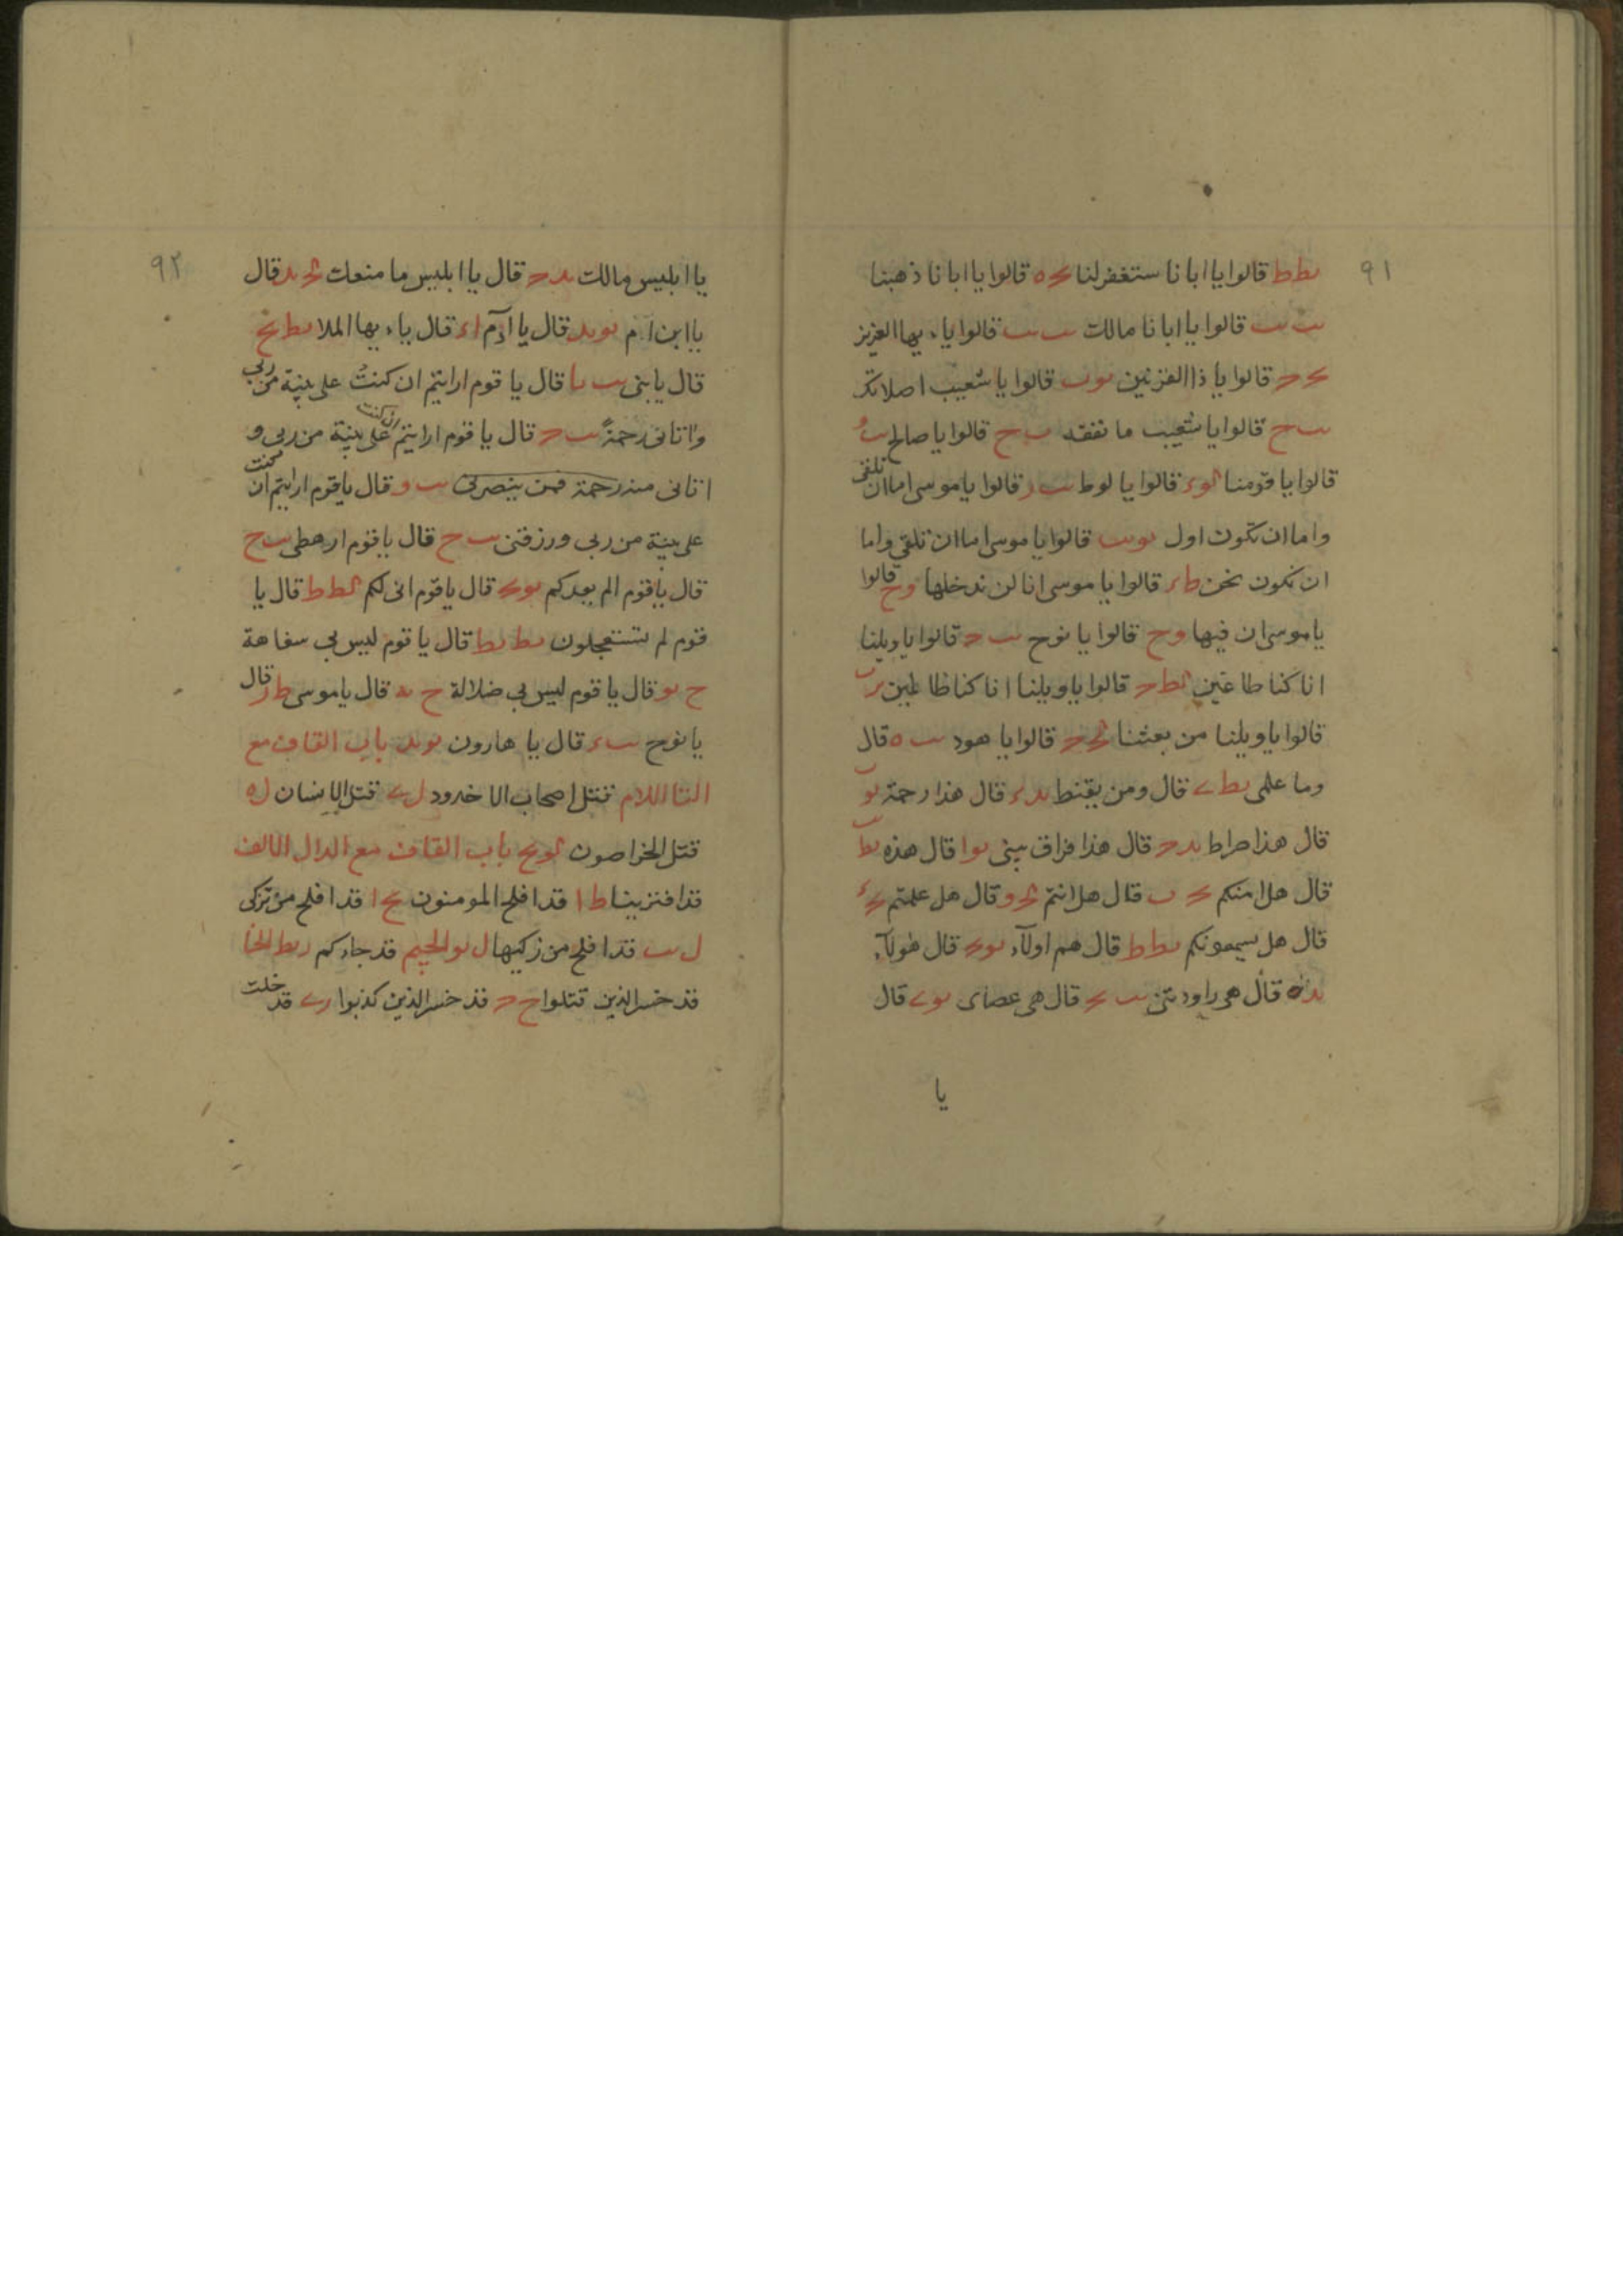 ٩١
قالوا يا ابانا ستغفر لنا قالوا يا ابانا ذهبنا
قالوا يا ابانا مالك قالوا ياءيها العزيز
قالوا يا ذا القرنين قالوا يا شعيب اصلاتك
قالوا يا شعيب ما نفقه قالوا يا صالح
قالوا يا قومنا قالوا يا لوط قالوا يا موسى اما ان تلقى
واما ان نكون اول قالوا يا موسى اما ان تلقى واما
ان نكون نحن قالوا يا موسى انا لن ندخلها قالوا
يا موسى ان فيها قالوا يا نوح قالوا يا ويلنا
انا كنا طاغين قالوا يا ويلنا انا كنا ظالمين
قالوا يا ويلنا من بعثنا قالوا يا هود قال
وما علمى قال ومن يقنط قال هذا رحمة
قال هذا صراط قال هذا فراق بينى قال هذه
قال هل امنكم قال هل انتم قال هل علمتم
قال هل يسمعونكم قال هم اولآء قال هولآء
قال هى راودتنى قال هى عصاى قال
يا
٩٢
يا ابليس مالك قال يا ابليس ما منعك قال
يا ابن ام قال يا آدم قال ياءيها الملا
قال يا بنى قال يا قوم ارايتم ان كنت على بينة من ربى
واتانى رحمة قال يا قوم ارايتم ان كنت على بينة من ربى و
اتانى منه رحمة فمن ينصرنى قال يا قوم ارايتم ان كنت
على بينة من ربى ورزقنى قال يا قوم ارهطى
قال يا قوم الم يعدكم قال يا قوم انى لكم قال يا
قوم لم تستعجلون قال يا قوم ليس بى سفاهة
قال يا قوم ليس بى ضلالة قال يا موسى قال
يا نوح قال يا هارون باب القاف مع
التا اللام قتل اصحاب الاخدود قتل الانسان
قتل الخراصون باب القاف مع الدال الالف
قد افترينا قد افلح المومنون قد افلح من تزكى
قد افلح من زكيها الجيم قد جاءكم الخا
قد خسر الذين قتلوا قد خسر الذين كذبوا قد خلت